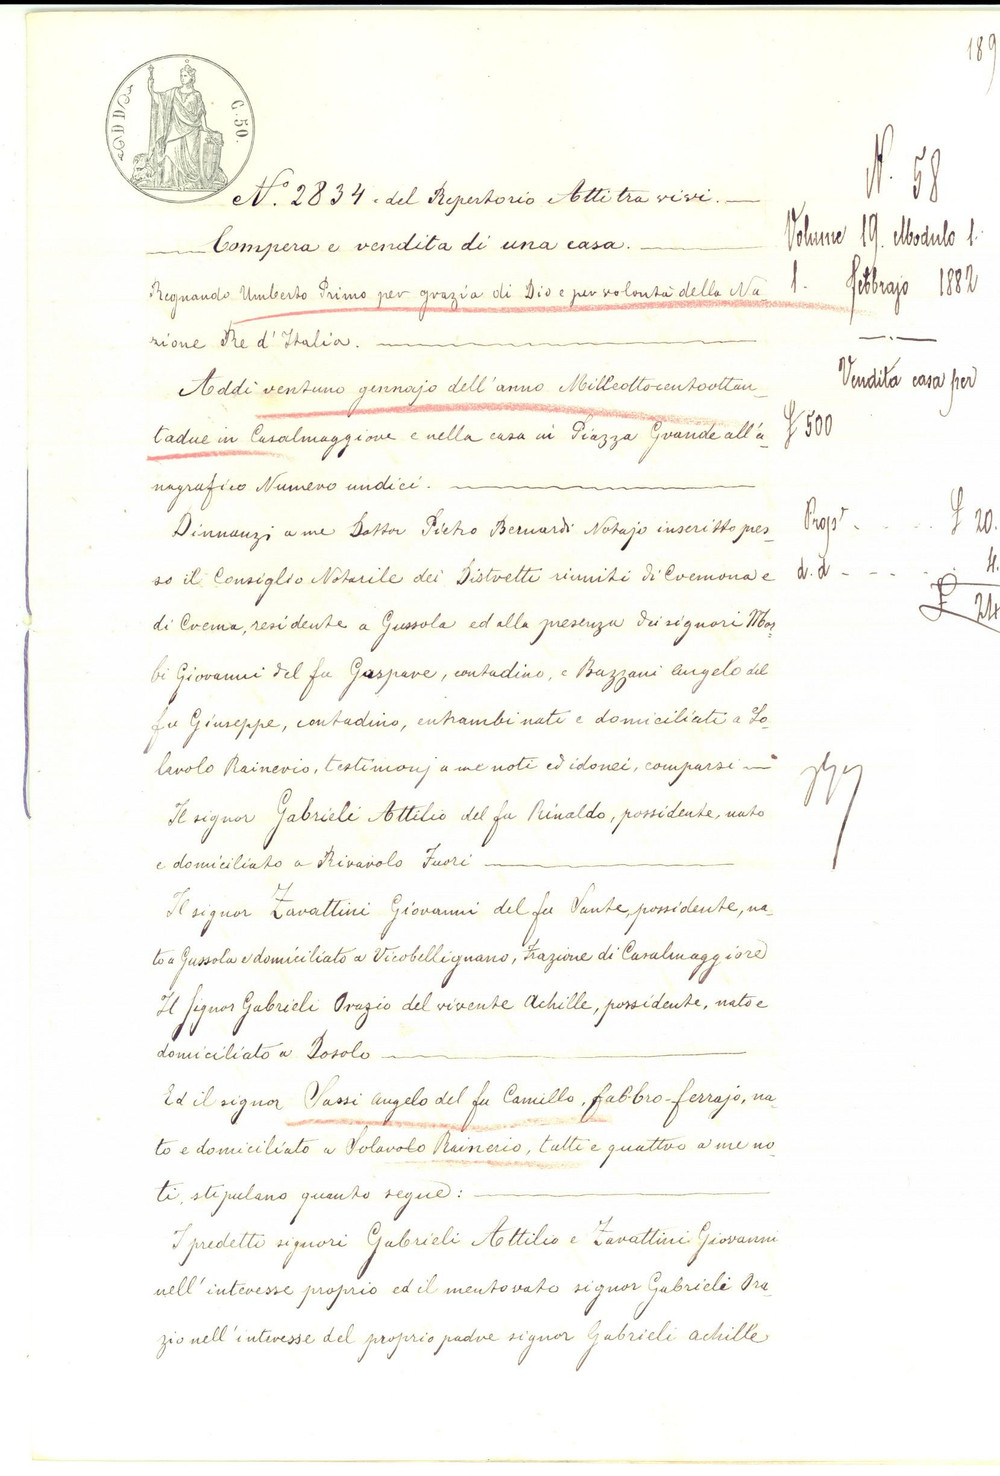 189
C. 50.
N.° 2834 del Repertorio Atti tra vivi.
Compera e vendita di una casa.
Regnando Umberto Primo per grazia di Dio e per volontà della Na-
zione Re d'Italia.
Addì ventuno gennajo dell'anno Milleottocentoottan
tadue in Casalmaggiore e nella casa in Piazza Grande all'a-
nagrafico Numero undici.
Dinnanzi a me Dottor Pietro Bernardi Notajo inscritto pres-
so il Consiglio Notarile dei Distretti riuniti di Cremona e
di Crema, residente a Gussola ed alla presenza dei signori Mor-
bi Giovanni del fu Gaspare, contadino, e Bazzani Angelo del
fu Giuseppe, contadino, entrambi nati e domiciliati a So-
larolo Rainerio, testimonj a me noti ed idonei, comparsi
Il signor Gabrieli Attilio del fu Rinaldo, possidente, nato
e domiciliato a Rivarolo Fuori
Il signor Zavattini Giovanni del fu Sante, possidente, na-
to a Gussola e domiciliato a Vicobellignano, Frazione di Casalmaggiore
Il Signor Gabrieli Orazio del vivente Achille, possidente, nato e
domiciliato a Dosolo
Ed il signor Sassi Angelo del fu Camillo, fabbro-ferrajo, na-
to e domiciliato a Solarolo Rainerio, tutti e quattro a me no-
ti, stipulano quanto segue:
I predetti signori Gabrieli Attilio e Zavattini Giovanni
nell'interesse proprio ed il mentovato signor Gabrieli Ora-
zio nell'interesse del proprio padre signor Gabrieli Achille
N. 58
Volume 19. Modulo 1.
1. Febbrajo 1882
Vendita casa per
£ 500
Prop.e £ 20.
d. d 4.
£ 24